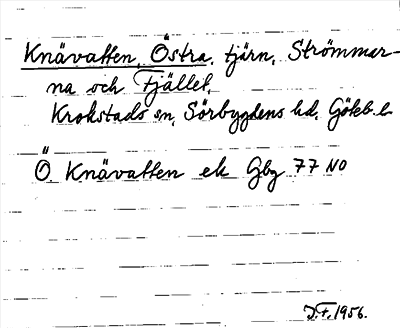 Knävatten, Östra, tjärn, Strömmar-
na och Fjället,
Krokstads sn, Sörbygdens hd, Göteb. l.
Ö Knävatten ek Gbg 77 NO
J.F. 1956.